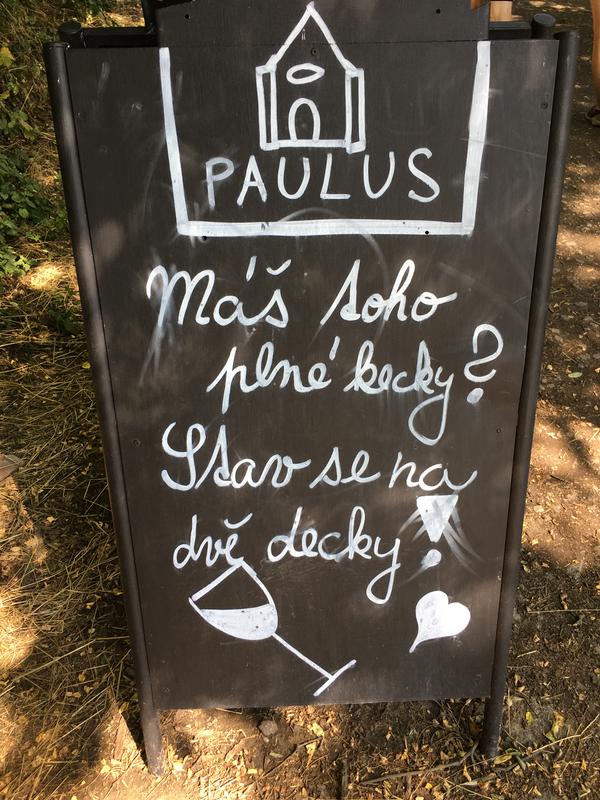 PAULUS
Máš toho
plné kecky?
Stav se na
dvě decky!